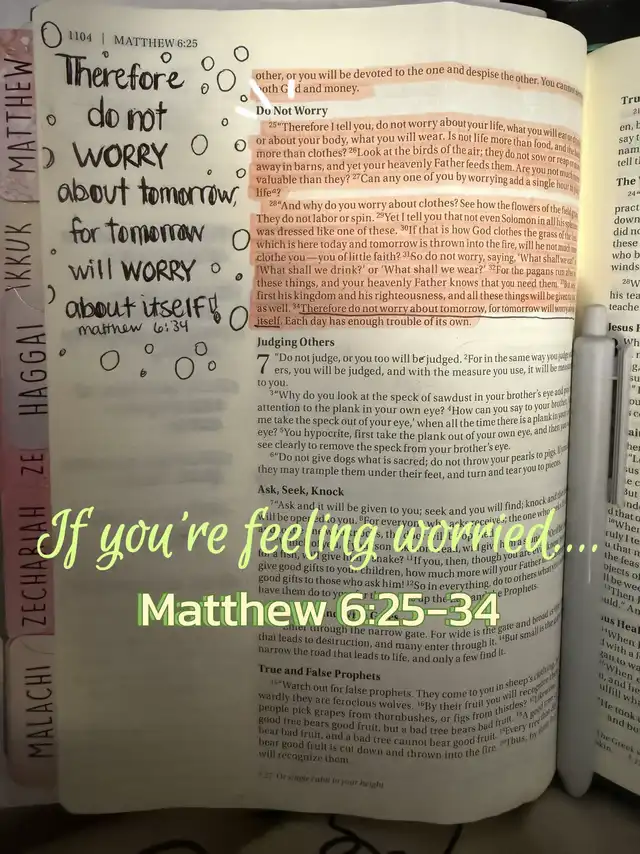 1104 | MATTHEW 6:25
Therefore
do not
WORRY
about tomorrow,
for tomorrow
will WORRY
about itself!
matthew 6:34
MATTHEW
KKUK
HAGGAI
ZE
ZECHARIAH
MALACHI
other, or you will be devoted to the one and despise the other. You cannot
both God and money.
Do Not Worry
25"Therefore I tell you, do not worry about your life, what you will eat or
or about your body, what you will wear. Is not life more than food, and the
more than clothes? 26Look at the birds of the air; they do not sow or reap or
away in barns, and yet your heavenly Father feeds them. Are you not much
valuable than they? 27Can any one of you by worrying add a single hour to
life?
28"And why do you worry about clothes? See how the flowers of the field
They do not labor or spin. 29Yet I tell you that not even Solomon in all his
was dressed like one of these. 30If that is how God clothes the grass of the
which is here today and tomorrow is thrown into the fire, will he not much
clothe you—you of little faith? 31So do not worry, saying, 'What shall we
'What shall we drink?' or 'What shall we wear?' 32For the pagans run after
these things, and your heavenly Father knows that you need them.
first his kingdom and his righteousness, and all these things will be given to
as well. 34Therefore do not worry about tomorrow, for tomorrow will worry about
itself. Each day has enough trouble of its own.
Judging Others
7 "Do not judge, or you too will be judged. 2For in the same way you judge
ers, you will be judged, and with the measure you use, it will be measured
to you.
3"Why do you look at the speck of sawdust in your brother's eye and pay
attention to the plank in your own eye? 4How can you say to your brother,
me take the speck out of your eye,' when all the time there is a plank in your
eye? 5You hypocrite, first take the plank out of your own eye, and then you
see clearly to remove the speck from your brother's eye.
6"Do not give dogs what is sacred; do not throw your pearls to pigs. If
they may trample them under their feet, and turn and tear you to pieces.
Ask, Seek, Knock
7"Ask and it will be given to you; seek and you will find; knock and
will be opened to you. 8For everyone who asks receives; the one who
If you're feeling worried....
for a fish, will give him a snake? 11If you, then, though you are
give good gifts to your children, how much more will your Father
good gifts to those who ask him! 12So in everything, do to others what
have them do to you, for the Prophets.
Matthew 6:25-34
through the narrow gate. For wide is the gate and broad is
that leads to destruction, and many enter through it. 14But small is the
narrow the road that leads to life, and only a few find it.
True and False Prophets
15"Watch out for false prophets. They come to you in sheep's clothing,
wardly they are ferocious wolves. 16By their fruit you will recognize
people pick grapes from thornbushes, or figs from thistles?
good tree bears good fruit, but a bad tree bears bad fruit. 18A good
bear bad fruit, and a bad tree cannot bear good fruit. 19Every tree
bear good fruit is cut down and thrown into the fire. 20Thus, by
will recognize them.
Or single cubit to your height